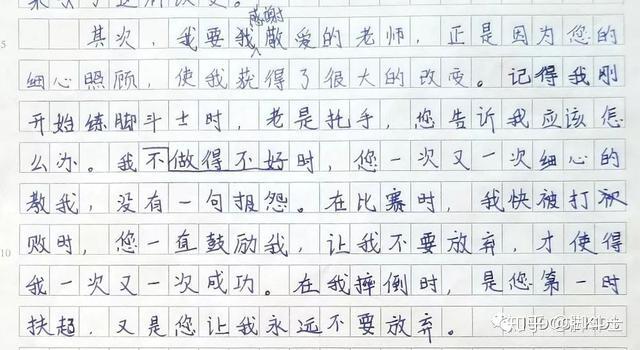 感谢
其次，我要我敬爱的老师，正是因为您的
细心照顾，使我获得了很大的改变。记得我刚
开始练脚斗士时，老是托手，您告诉我应该怎
么办。我不做得不好时，您一次又一次细心的
教我，没有一句报怨。在比赛时，我快被打
败时，您一直鼓励我，让我不要放弃，才使得
我一次又一次成功。在我摔倒时，是您第一时
扶起，又是您让我永远不要放弃。
5
10
知乎